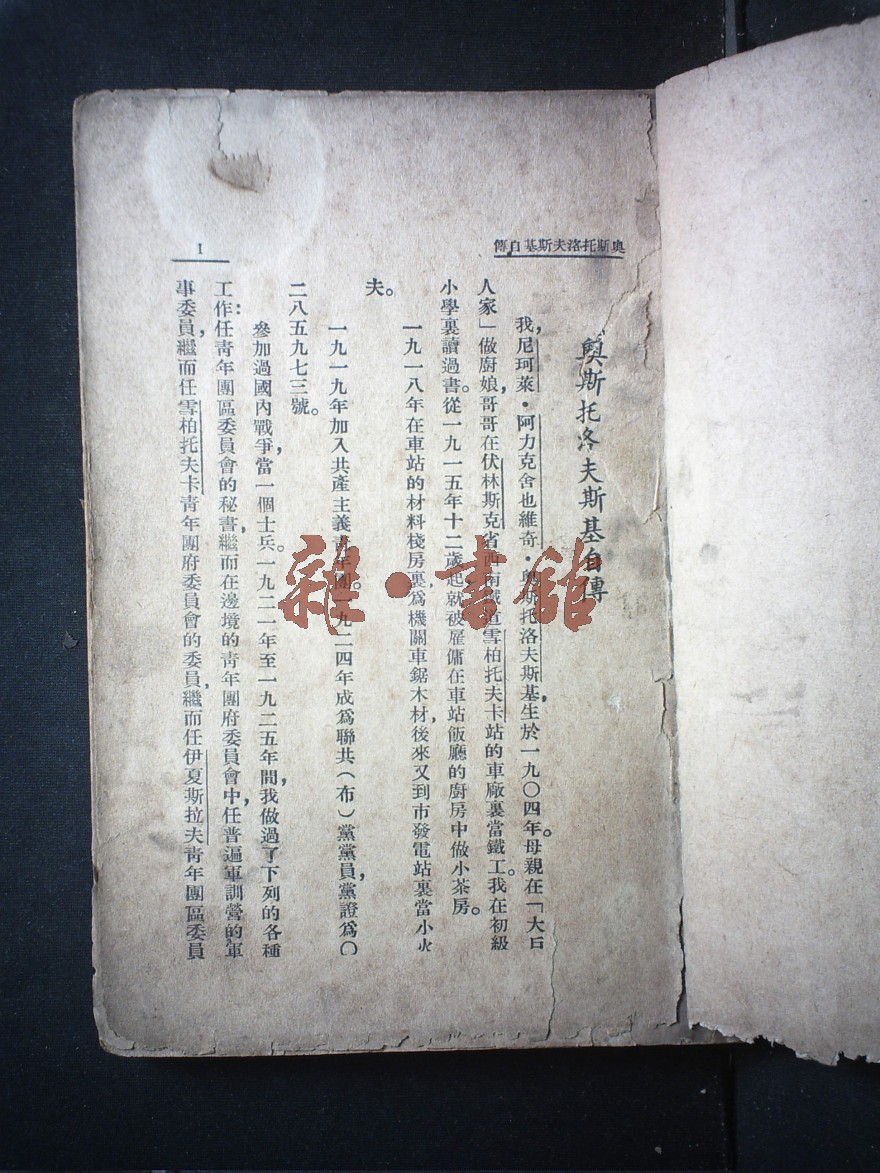 奧斯托洛夫斯基自傳
1
奧斯托洛夫斯基自傳
我，尼珂萊·阿力克舍也維奇·奧斯托洛夫斯基，生於一九〇四年。母親在「大戶
人家」做廚娘，哥哥在伏林斯克省西南鐵道雪柏托夫卡站的車廠裏當鐵工。我在初級
小學裏讀過書。從一九一五年十二歲起，就被雇傭在車站飯廳的廚房中做小茶房。
一九一八年在車站的材料棧房裏，爲機關車鋸木材，後來又到市發電站裏當小火
夫。
一九一九年加入共產主義青年團。一九二四年成爲聯共（布）黨黨員，黨證爲〇
二八五九七三號。
參加過國內戰爭，當一個士兵。一九二一年至一九二五年間，我做過了下列的各種
工作：任青年團區委員會的秘書，繼而在邊境的青年團府委員會中，任普遍軍訓營的軍
事委員，繼而任雪柏托夫卡青年團府委員會的委員，繼而任伊夏斯拉夫青年團區委員
雜·書館